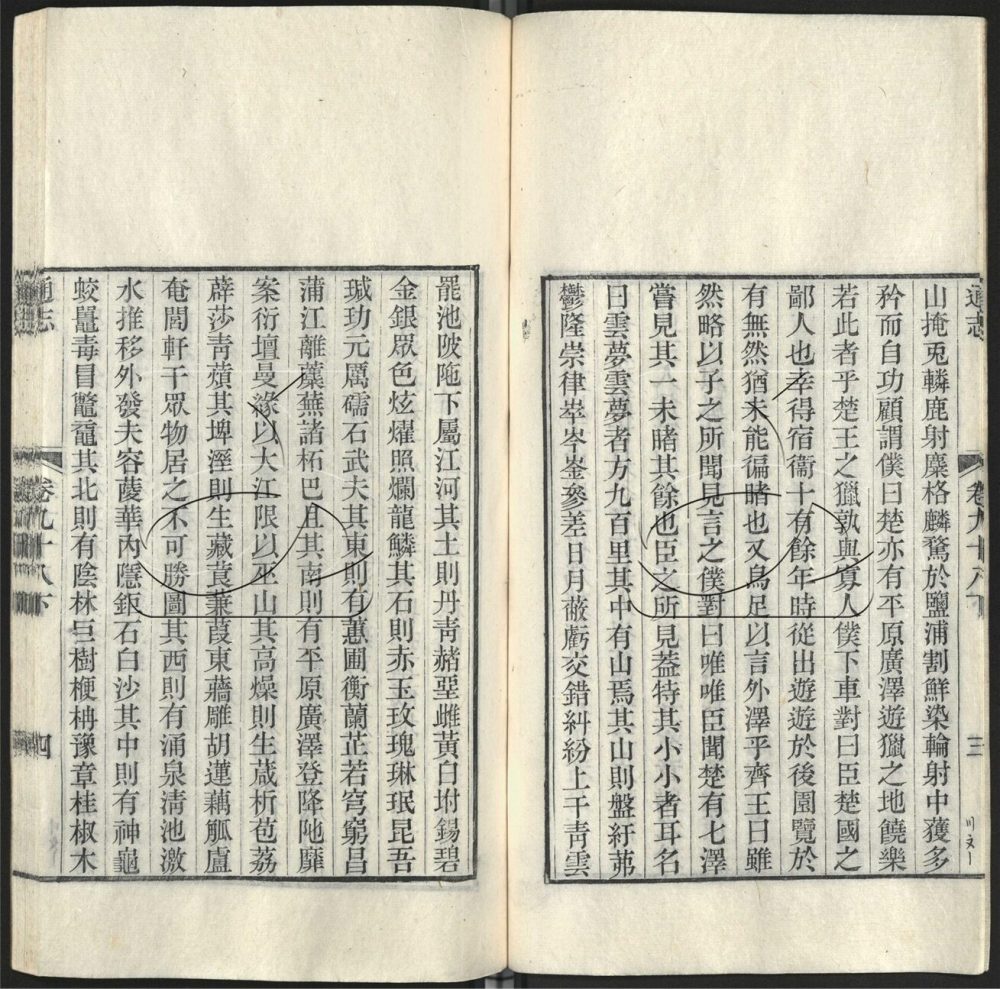 通志
卷九十八下
三
山掩兎轔鹿射麋格麟騖於鹽浦割鮮染輪射中獲多
矜而自功顧謂僕曰楚亦有平原廣澤遊獵之地饒樂
若此者乎楚王之獵孰與寡人僕下車對曰臣楚國之
鄙人也幸得宿衞十有餘年時從出遊遊於後園覽於
有無然猶未能徧睹也又烏足以言外澤乎齊王曰雖
然略以子之所聞見言之僕對曰唯唯臣聞楚有七澤
嘗見其一未睹其餘也臣之所見葢特其小小者耳名
曰雲夢雲夢者方九百里其中有山焉其山則盤紆茀
鬱隆崇律崒岑崟參差日月蔽虧交錯糾紛上干青雲
罷池陂陁下屬江河其土則丹靑赭堊雌黃白坿錫碧
金銀眾色炫燿照爛龍鱗其石則赤玉玫瑰琳珉昆吾
瑊玏元厲礝石武夫其東則有蕙圃衡蘭芷若穹窮昌
蒲江離蘪蕪諸柘巴且其南則有平原廣澤登降阤靡
案衍壇曼緣以大江限以巫山其高燥則生葴析苞荔
薜莎靑薠其埤溼則生藏莨蒹葭東蘠雕胡蓮藕觚盧
奄閭軒于眾物居之不可勝圖其西則有涌泉淸池激
水推移外發夫容蔆華內隱鉅石白沙其中則有神龜
蛟鼉毒冒鼈黿其北則有陰林巨樹楩枏豫章桂椒木
通志
卷九十八下
四